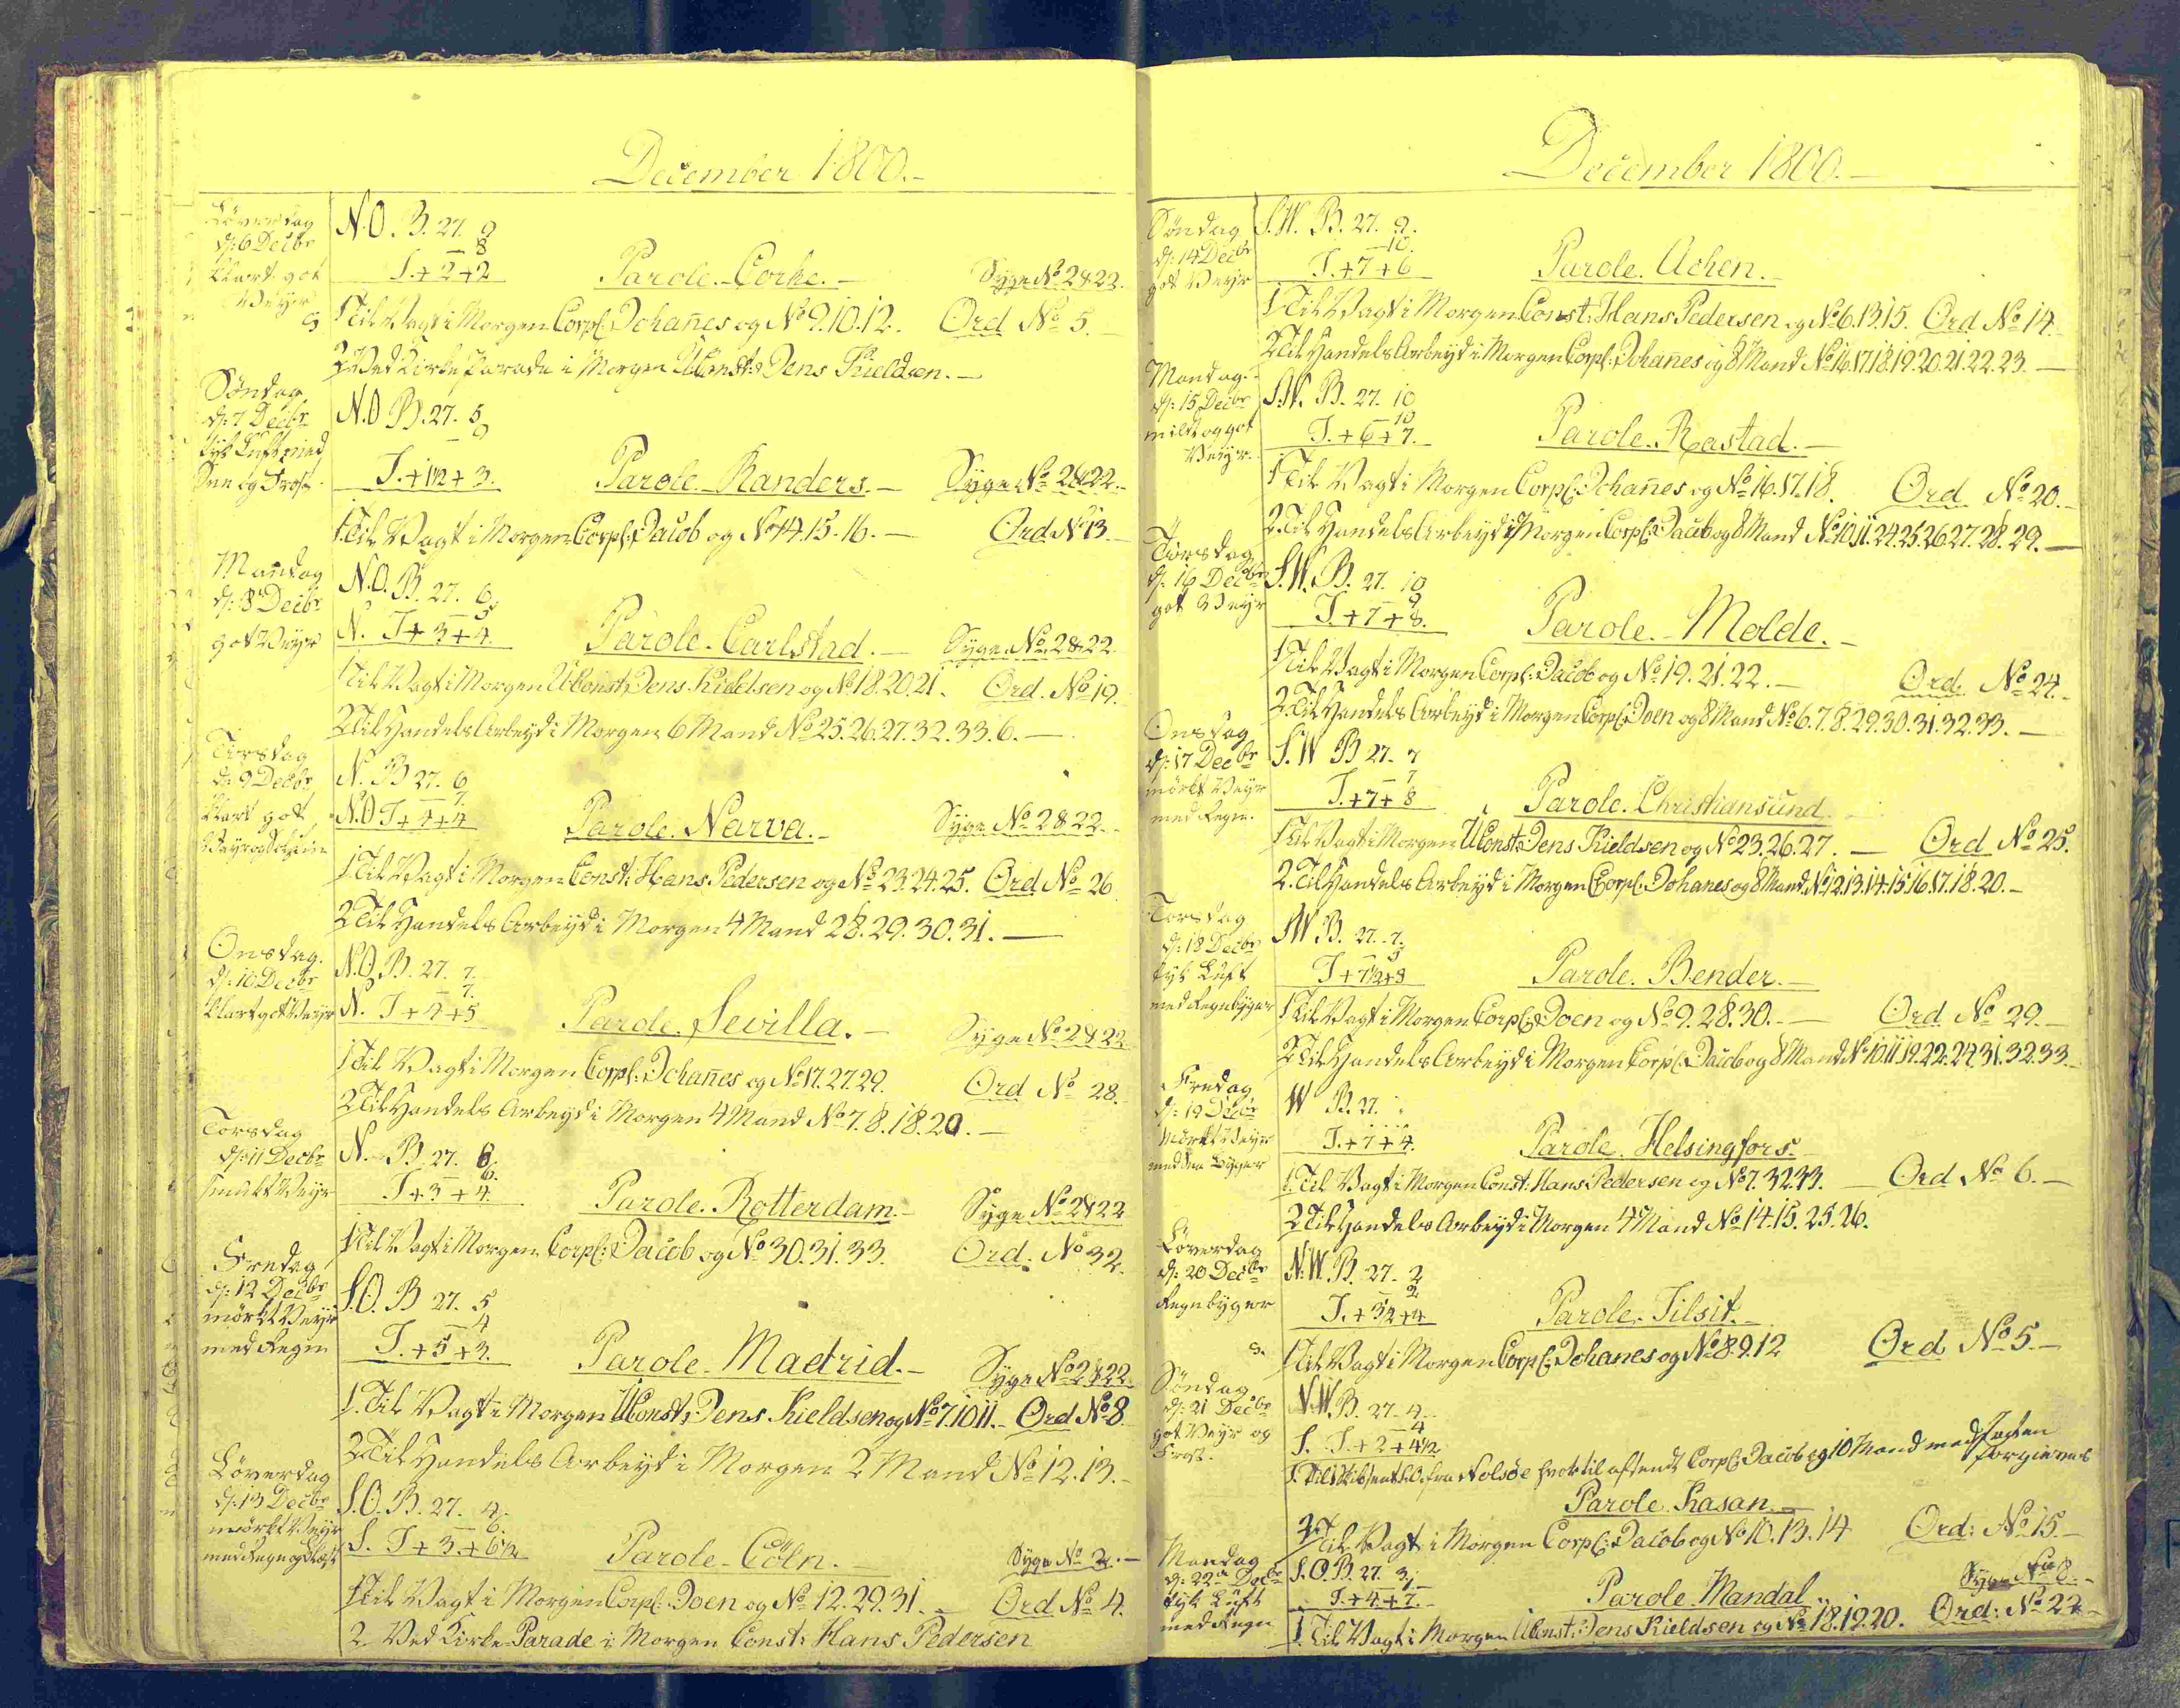 December 1800.-
Löverdag
d: 6 Decbr
klart got
Veyr
N.O. B. 27. 9
— 8
T. + 2 + 2
Parole. Corke. —
Syge No 2 & 22.
1 Til Vagt i Morgen Corpl: Johañes og No 9. 10. 12. Ord No 5. —
2 Ved Kirke Parade i Morgen UConst: Jens Kieldsen. —
Söndag
d: 7 Decbr
tyk Luft med
Snee og Frost.
N.O B. 27. 5
— 9
T. + 1 1/2 + 3.
Parole. Randers. —
Syge No 2 & 22. —
1. Til Vagt i Morgen Corpl: Jacob og No 14. 15. 16. — Ord. No 13. —
Mandag
d: 8de Decbr
got Veyr
N.O. B. 27. 6
— 5
N. T + 3 + 4.
Parole. Carlstad. —
Syge No 2 & 22.
1 Til Vagt i Morgen UConst: Jens Kieldsen og No 18. 20. 21. Ord. No 19.
2 Til Handels Arbeyd i Morgen 6 Mand No 25. 26. 27. 32. 33. 6. —
Tirsdag
d: 9 Decbr
klart got
Veyr og Solskin
N. B 27. 6
— 7.
N.O T + 4 + 4
Parole. Narva. —
Syge No 2 & 22. —
1. Til Vagt i Morgen Const: Hans Pedersen og No 23. 24. 25. Ord No 26
2 Til Handels Arbeyd i Morgen 4 Mand 28. 29. 30. 31. —
Onsdag.
d: 10 Decbr
klart got Veyr
N.O. B. 27. 7
— 7.
N. T + 4 + 5
Parole. Sevilla. —
Syge No 2 & 22
1 Til Vagt i Morgen Corpl: Johañes og No 17. 27. 29. Ord No 28.
2 Til Handels Arbeyd i Morgen 4 Mand No 7. 8. 18. 20. —
Torsdag
d: 11 Decbr
smukt Veyr
N. B 27. 6
— 6.
T + 3 + 4.
Parole. Rotterdam. —
Syge No 2 & 22
1 Til Vagt i Morgen Corpl: Jacob og No 30. 31. 33. Ord: No 32.
Fredag
d: 12 Decbr
mörkt Veyr
med Regn
S.O. B 27. 5
— 4
T. + 5 + 3.
Parole. Madrid. —
Syge No 2 & 22
1. Til Vagt i Morgen UConst: Jens Kieldsen og No 7. 10 11. — Ord No 8
2 Til Handels Arbeyd i Morgen 2 Mand No 12. 13. —
Löverdag
d: 13 Decbr
mörkt Veyr
med Regn og Blæst
S.O. B. 27. 4.
— 6.
S. T + 3 + 6 1/2
Parole. Cöln. —
Syge No 2. —
1 Til Vagt i Morgen Corpl: Joen og No 12. 29. 31. — Ord No 4.
2 Ved Kirke Parade i Morgen Const: Hans Pedersen
December 1800. —
Söndag
d: 14 Decbr
got Veyr
S.W. B. 27. 9.
— 10.
T. + 7 + 6
Parole. Achen. —
1 Til Vagt i Morgen Const: Hans Pedersen og No 6. 13. 15. Ord No 14.
2 Til Handels Arbeyd i Morgen Corpl: Johanes og 8 Mand No 16. 17. 18. 19. 20. 21. 22. 23. —
Mandag.
d: 15 Decbr
mildt og got
Veyr.
S.W. B. 27. 10
— 10
T. + 6 + 7. —
Parole. Rastad. —
1 Til Vagt i Morgen Corpl: Johañes og No 16. 17. 18. Ord No 20. —
2. Til Handels Arbeyd i Morgen Corpl: Jacob og 8 Mand No 10. 11. 24. 25. 26. 27. 28. 29. —
Tirsdag
d: 16 Decbr
got Veyr
S.W. B. 27. 10
— 9
T. + 7 + 8.
Parole. Molde. —
1 Til Vagt i Morgen Corpl: Jacob og No 19. 21. 22. — Ord No 24. —
2. Til Handels Arbeyd i Morgen Corpl: Joen og 8 Mand No 6. 7. 8. 29. 30. 31. 32. 33. —
Onsdag
d: 17 Decbr
mörkt Veyr
med Regn.
S.W B 27. 7
— 7
T. + 7 + 8
Parole. Christiansund.
1 Til Vagt i Morgen UConst: Jens Kieldsen og No 23. 26. 27. — Ord No 25.
2. Til Handels Arbeyd i Morgen Corpl: Johanes og 8 Mand. No 12. 13. 14. 15. 16. 17. 18. 20. —
Torsdag
d: 18 Decbr
tyk Luft
med Regnbyger
SW B. 27. 7.
— 5
T + 7 1/2 + 8
Parole. Bender. —
1 Til Vagt i Morgen Corpl: Joen og No 9. 28. 30. — Ord No 29. —
2 Til Handels Arbeyd i Morgen Corpl: Jacob og 8 Mand No 10. 11. 19. 22. 24. 31. 32. 33. —
Fredag
d: 19 Decbr
Mörkt Veyr
med Snee Byger
W B. 27.
T. + 7 + 4.
Parole. Helsingfors. —
1. Til Vagt i Morgen Const: Hans Pedersen og No 7. 32. 33. — Ord No 6. —
2 Til Handels Arbeyd i Morgen 4 Mand No 14. 15. 25. 26.
Löverdag
d: 20 Decbr
Regnbyger
N.W. B. 27. 2
— 2
T. + 3 1/2 + 4
Parole. Tilsit. —
1 Til Vagt i Morgen Corpl: Johanes og No 8. 9. 12 Ord No 5. —
Söndag
d: 21 Decbr
got Veyr og
Frost.
N.W. B. 27. 4
— 4
S. T. + 2 + 4 1/2
fra Nolsöe hvortil afsendt Corpl: Jacob og 10 Mand med
forgieves
Parole. Kasan. —
2 Til Vagt i Morgen Corpl: Jacob og No 10. 13. 14 Ord: No 15. —
Mandag
d: 22de Decbr
tyk Luft
med Regn
S.O. B. 27. 3
T + 4 + 7. —
Parole. Mandal
1 Til Vagt i Morgen UConst: Jens Kieldsen og No 18. 19. 20. Ord: No 22 —